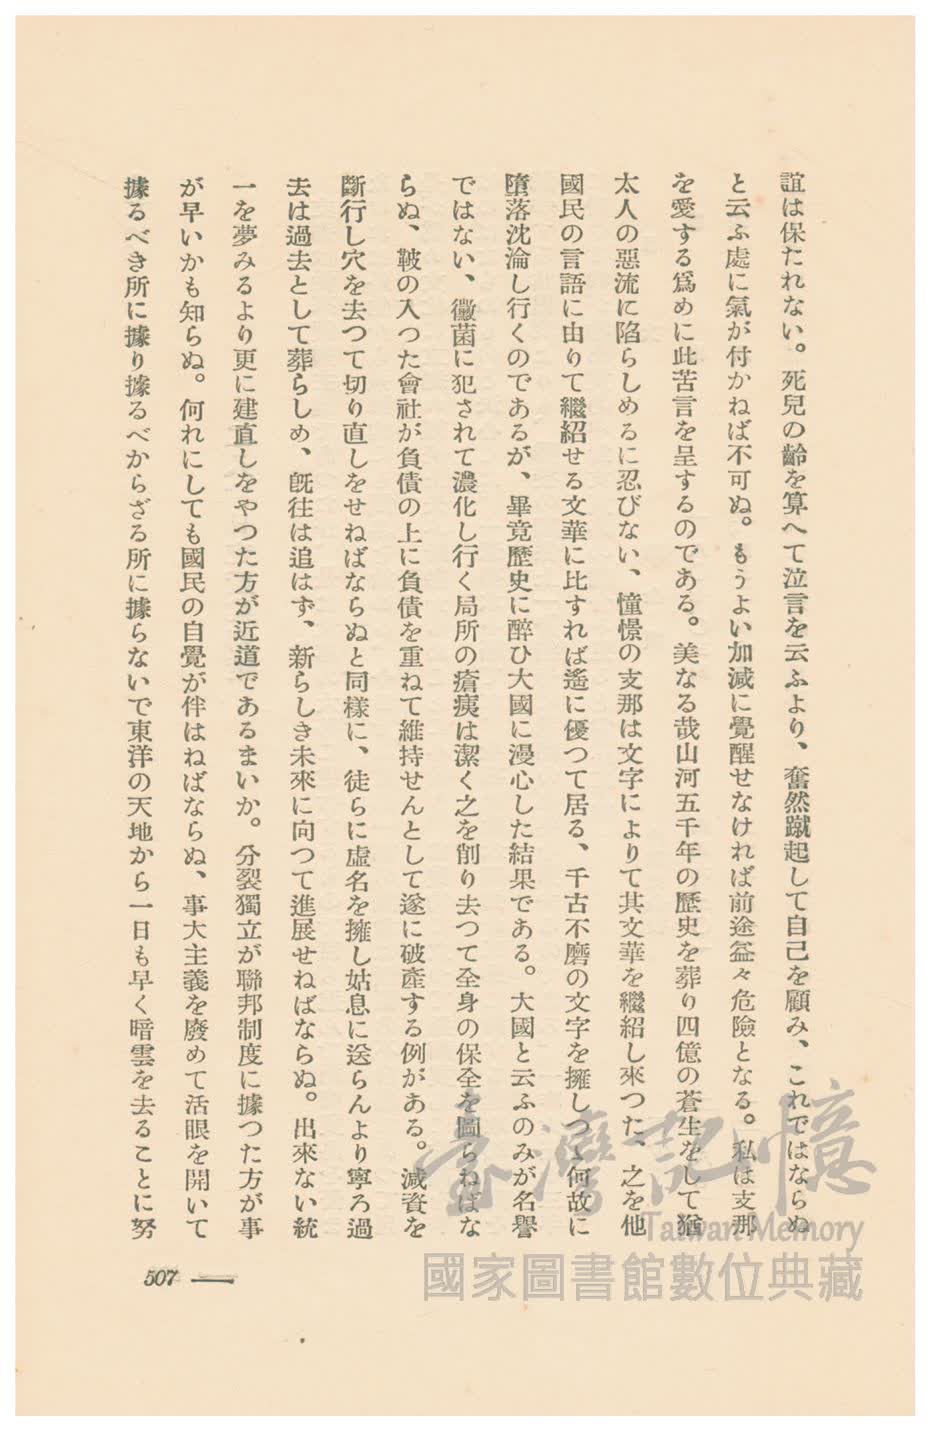 誼は保たれない。死兒の齡を算へて泣言を云ふより、奮然蹴起して自己を顧み、これではならぬ
と云ふ處に氣が付かねば不可ぬ。もうよい加減に覺醒せなければ前途益々危險となる。私は支那
を愛する爲めに此苦言を呈するのである。美なる哉山河五千年の歷史を葬り四億の蒼生をして猶
太人の惡流に陷らしめるに忍びない、憧憬の支那は文字によりて其文華を繼紹し來つた、之を他
國民の言語に由りて繼紹せる文華に比すれば遙に優つて居る、千古不磨の文字を擁しつゝ何故に
墮落沈淪し行くのであるが、畢竟歷史に醉ひ大國に漫心した結果である。大國と云ふのみが名譽
ではない、黴菌に犯されて濃化し行く局所の瘡痍は潔く之を削り去つて全身の保全を圖らねばな
らぬ、皸の入つた會社が負債の上に負債を重ねて維持せんとして遂に破產する例がある。減資を
斷行し穴を去つて切り直しをせねばならぬと同樣に、徒らに虛名を擁し姑息に送らんより寧ろ過
去は過去として葬らしめ、旣往は追はず、新らしき未來に向つて進展せねばならぬ。出來ない統
一を夢みるより更に建直しをやつた方が近道であるまいか。分裂獨立が聯邦制度に據つた方が事
が早いかも知らぬ。何れにしても國民の自覺が伴はねばならぬ、事大主義を廢めて活眼を開いて
據るべき所に據り據るべからざる所に據らないで東洋の天地から一日も早く暗雲を去ることに努
507
臺灣記憶
Taiwan Memory
國家圖書館數位典藏